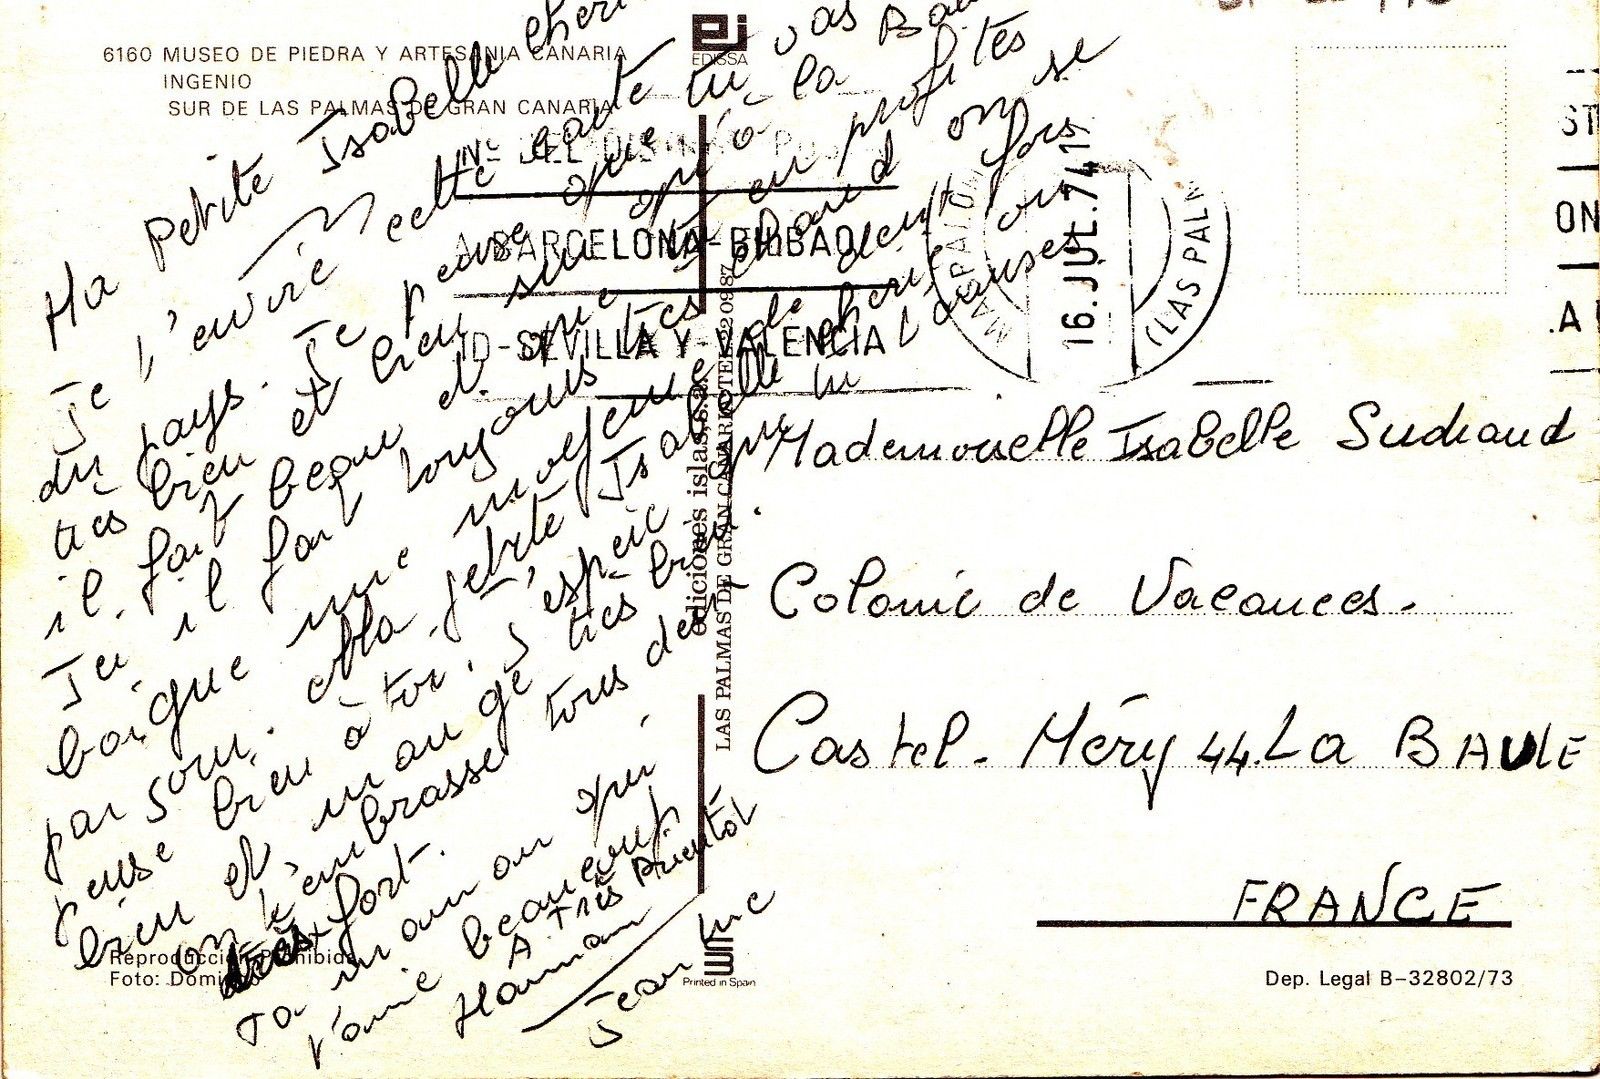 6160 MUSEO DE PIEDRA Y ARTESANIA CANARIA
INGENIO
SUR DE LAS PALMAS DE GRAN CANARIA
EDISSA
Ma petite Isabelle chérie
Je t'envoie cette carte
du pays. Je pense que tu vas
très bien et bien sur qu'à la
il fait beau et que tu en profites
Ici il fait toujours très chaud on se
baigne une moyenne de
par jour. Ma petite Isabelle chérie
pense bien à toi. J'espère que tu
bien et mange très bien.
on t'embrasse tous deux
très fort.
Ta maman qui
t'aime beaucoup
A Très Bientôt
Maman
Jean Luc
BARCELONA-BILBAO
ID-SEVILLA Y VALENCIA
16.JUL.74
(LAS PALM
ediciones islas,s.a.
LAS PALMAS DE GRAN CANARIA
Mademoiselle Isabelle Sudraud
Colonie de Vacances.
Castel-Méry 44.La BAULE
FRANCE
Reproducción Prohibida
Foto: Domingo
Printed in Spain
Dep. Legal B-32802/73